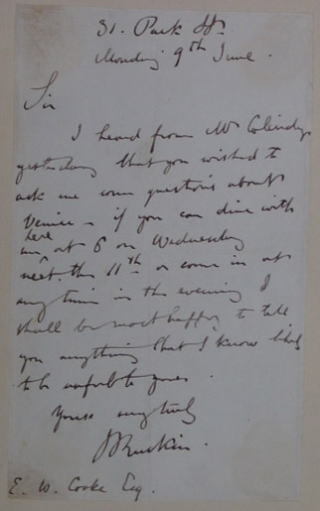 31. Park St.
Monday 9th June.
Sir
I heard from Mr
yesterday that you wished to
ask me some questions about
Venice - if you can dine with
here
me at 6 on Wednesday
next. the 11th or come in at
any time in the evening I
shall be most happy to tell
you anything that I know likely
to be useful to you.
Yours very truly
J Ruskin.
E. W. Cooke Esq.